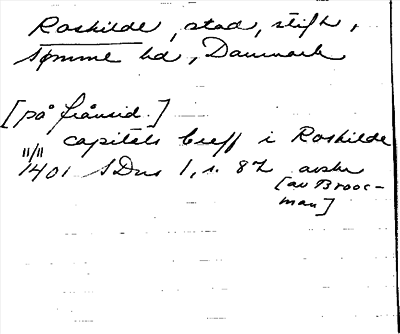 Roskilde, stad, stift,
Sømme hd, Danmark
[på frånsid.]
capitels breff i Roskilde
11/11
1401 SDns 1, s. 82 avskr
[av Brooc-
man]